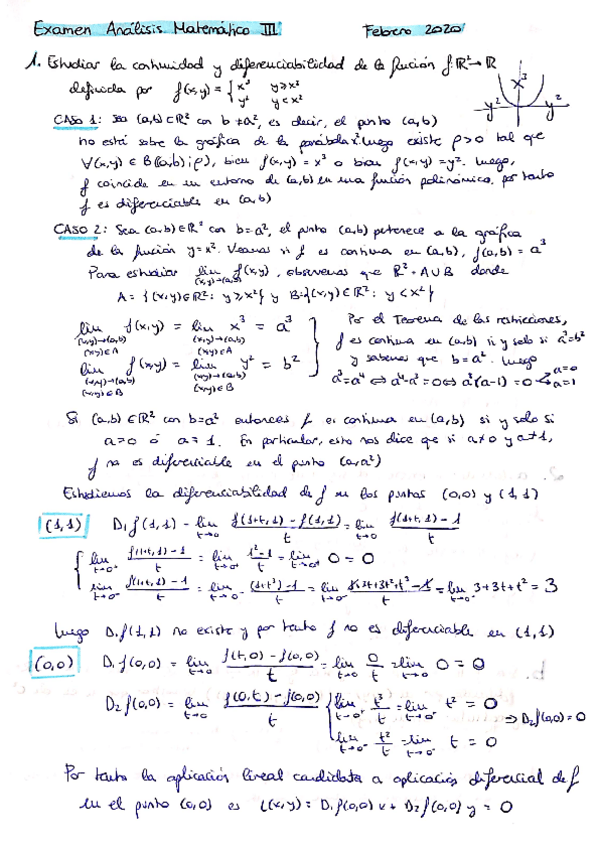 Examen Análisis Matemático III Febrero 2020
1. Estudiar la continuidad y diferenciabilidad de la función f: ℝ²→ℝ
definida por f(x,y) = { x³ y≥x² / y² y<x²
x³
y² y²
CASO 1: Sea (a,b)∈ℝ² con b≠a², es decir, el punto (a,b)
no está sobre la gráfica de la parábola x². Luego existe ρ>0 tal que
∀(x,y) ∈ B((a,b);ρ), bien f(x,y) = x³ o bien f(x,y) = y². Luego,
f coincide en un entorno de (a,b) en una función polinómica, por tanto
f es diferenciable en (a,b)
CASO 2: Sea (a,b)∈ℝ² con b=a², el punto (a,b) pertenece a la gráfica
de la función y=x². Veamos si f es continua en (a,b), f(a,b) = a³
Para estudiar lim (x,y)→(a,b) f(x,y), observemos que ℝ² = A∪B donde
A = {(x,y)∈ℝ²: y≥x²} y B={(x,y)∈ℝ²: y<x²}
lim (x,y)→(a,b) (x,y)∈A f(x,y) = lim (x,y)→(a,b) (x,y)∈A x³ = a³
lim (x,y)→(a,b) (x,y)∈B f(x,y) = lim (x,y)→(a,b) (x,y)∈B y² = b²
Por el Teorema de las restricciones,
f es continua en (a,b) si y solo si a³=b²
y sabemos que b=a². Luego
a³=a⁴ ⇔ a⁴-a³=0 ⇔ a³(a-1)=0 a=0 a=1
Si (a,b)∈ℝ² con b=a² entonces f es continua en (a,b) si y solo si
a=0 ó a=1. En particular, esto nos dice que si a≠0 y a≠1,
f no es diferenciable en el punto (a,a²)
Estudiemos la diferenciabilidad de f en los puntos (0,0) y (1,1)
(1,1) D₁f(1,1) = lim t→0 f(1+t,1)-f(1,1)/t = lim t→0 f(1+t,1)-1/t
lim t→0⁺ f(1+t,1)-1/t = lim t→0⁺ 1²-1/t = lim t→0⁺ 0 = 0
lim t→0⁻ f(1+t,1)-1/t = lim t→0⁻ (1+t)³-1/t = lim t→0⁻ 1+3t+3t²+t³-1/t = lim t→0⁻ 3+3t+t² = 3
Luego D₁f(1,1) no existe y por tanto f no es diferenciable en (1,1)
(0,0) D₁f(0,0) = lim t→0 f(t,0)-f(0,0)/t = lim t→0 0/t = lim t→0 0 = 0
D₂f(0,0) = lim t→0 f(0,t)-f(0,0)/t { lim t→0⁺ t³/t = lim t→0⁺ t² = 0
lim t→0⁻ t²/t = lim t→0⁻ t = 0
⇒ D₂f(0,0)=0
Por tanto la aplicación lineal candidata a aplicación diferencial de f
en el punto (0,0) es L(x,y) = D₁f(0,0) x + D₂f(0,0) y = 0